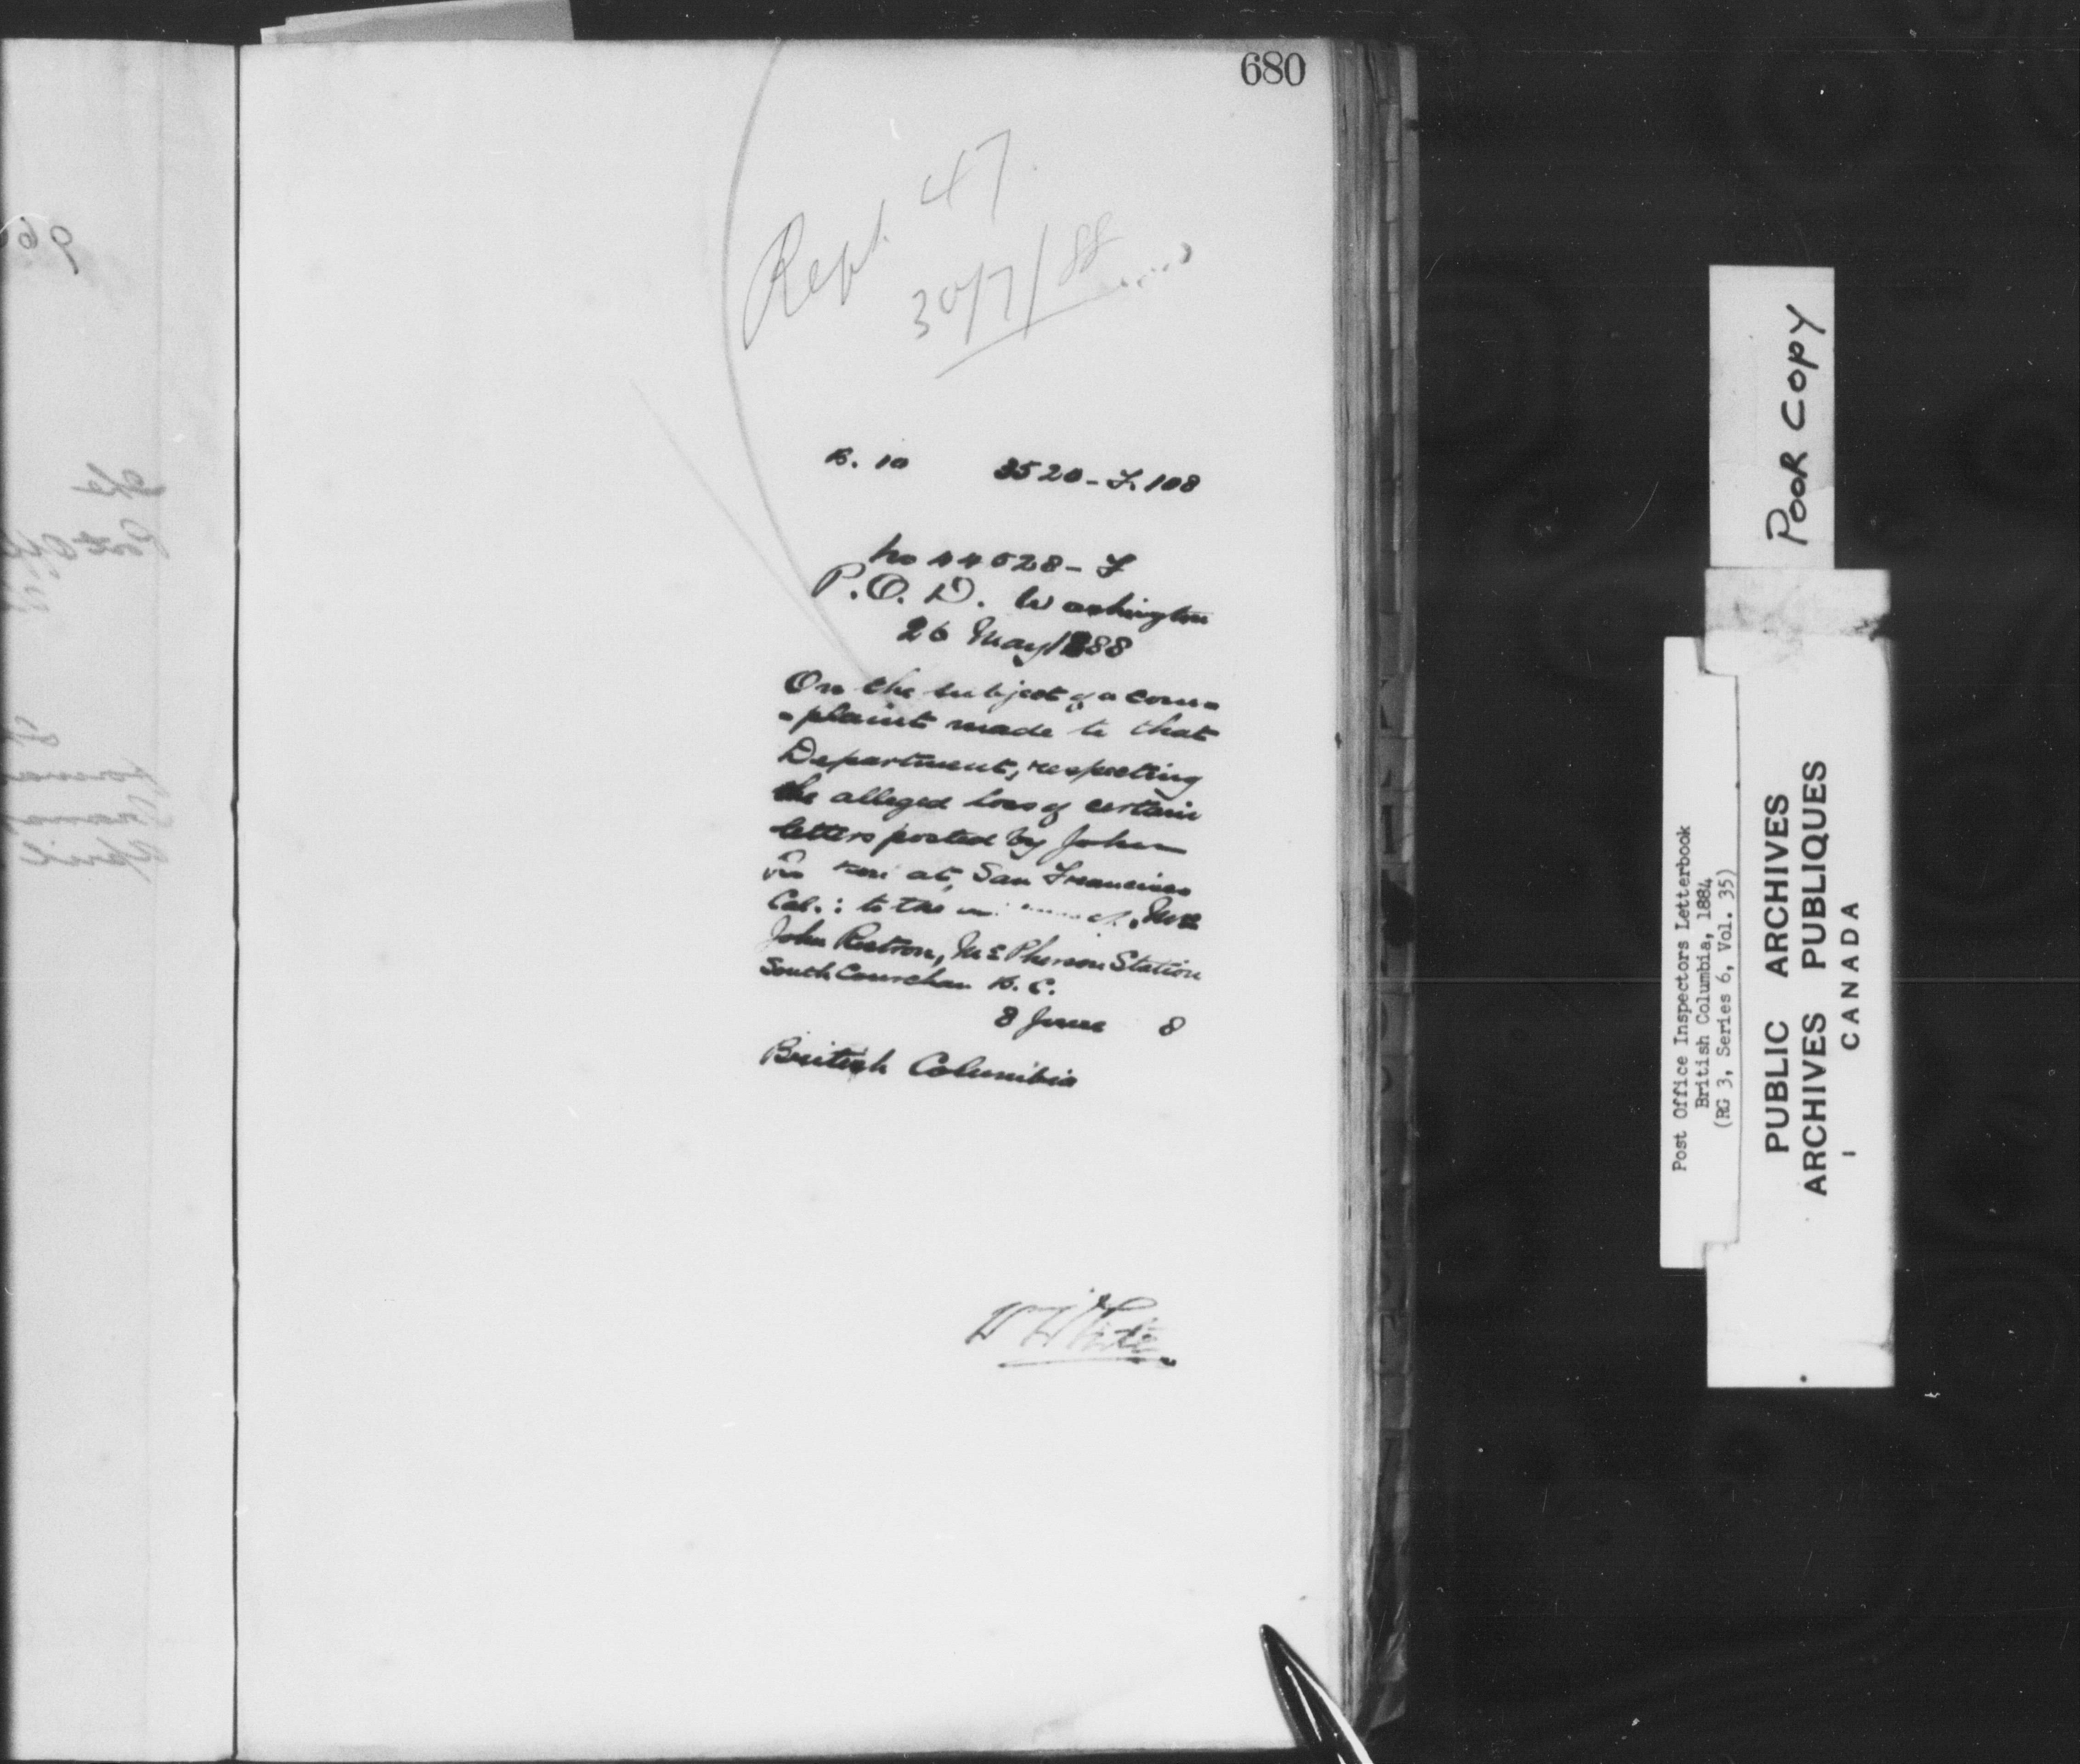 680
Rept. 47
30/7/88
B. 10 3520-F. 108
No 44528-F
P.O.D. Washington
26 May 1888
On the subject of a com-
-plaint made to that
Department, respecting
the alleged loss of certain
letters posted by John
at San Francisco
Cal.: to the Mrs
John Rostron, McPherson Station
South Cowichan B.C.
8 June 8
British Columbia
W White
POOR COPY
Post Office Inspectors Letterbook
British Columbia, 1884
(RG 3, Series 6, Vol. 35)
PUBLIC ARCHIVES
ARCHIVES PUBLIQUES
CANADA